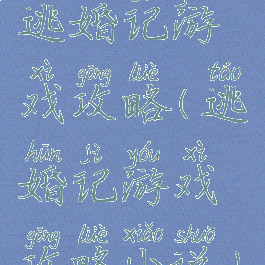 逃婚记游
xì gōng lüè táo
戏攻略(逃
hūn jì yóu xì
婚记游戏
gōng lüè xiǎo shuō
攻略小说)